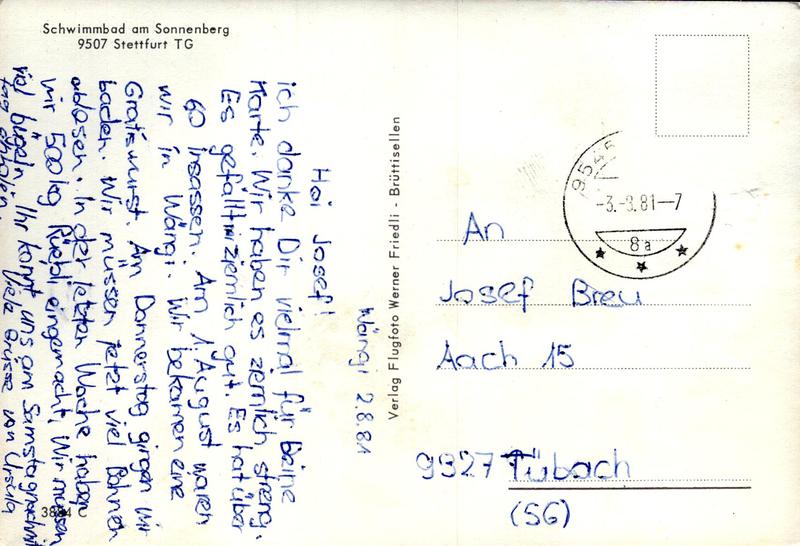 Schwimmbad am Sonnenberg
9507 Stettfurt TG
Wängi 2.8.81
Hoi Josef!
ich danke Dir vielmal für Deine
Karte. Wir haben es ziemlich streng.
Es gefällt mir ziemlich gut. Es hat über
60 Insassen. Am 1. August waren
wir in Wängi. Wir bekamen eine
Gratiswurst. Am Donnerstag gingen wir
baden. Wir müssen jetzt viel Bohnen
ablesen. In der letzten Woche haben
wir 500kg Rüebli eingemacht. Wir müssen
viel bügeln. Ihr könnt uns am Samstagnachmit
tag abholen. Viele Grüsse von Ursula
3884 C
Verlag Flugfoto Werner Friedli - Brüttisellen
9545
-3.-8.81-7
8a
An
Josef Breu
Aach 15
9327 Tübach
(SG)